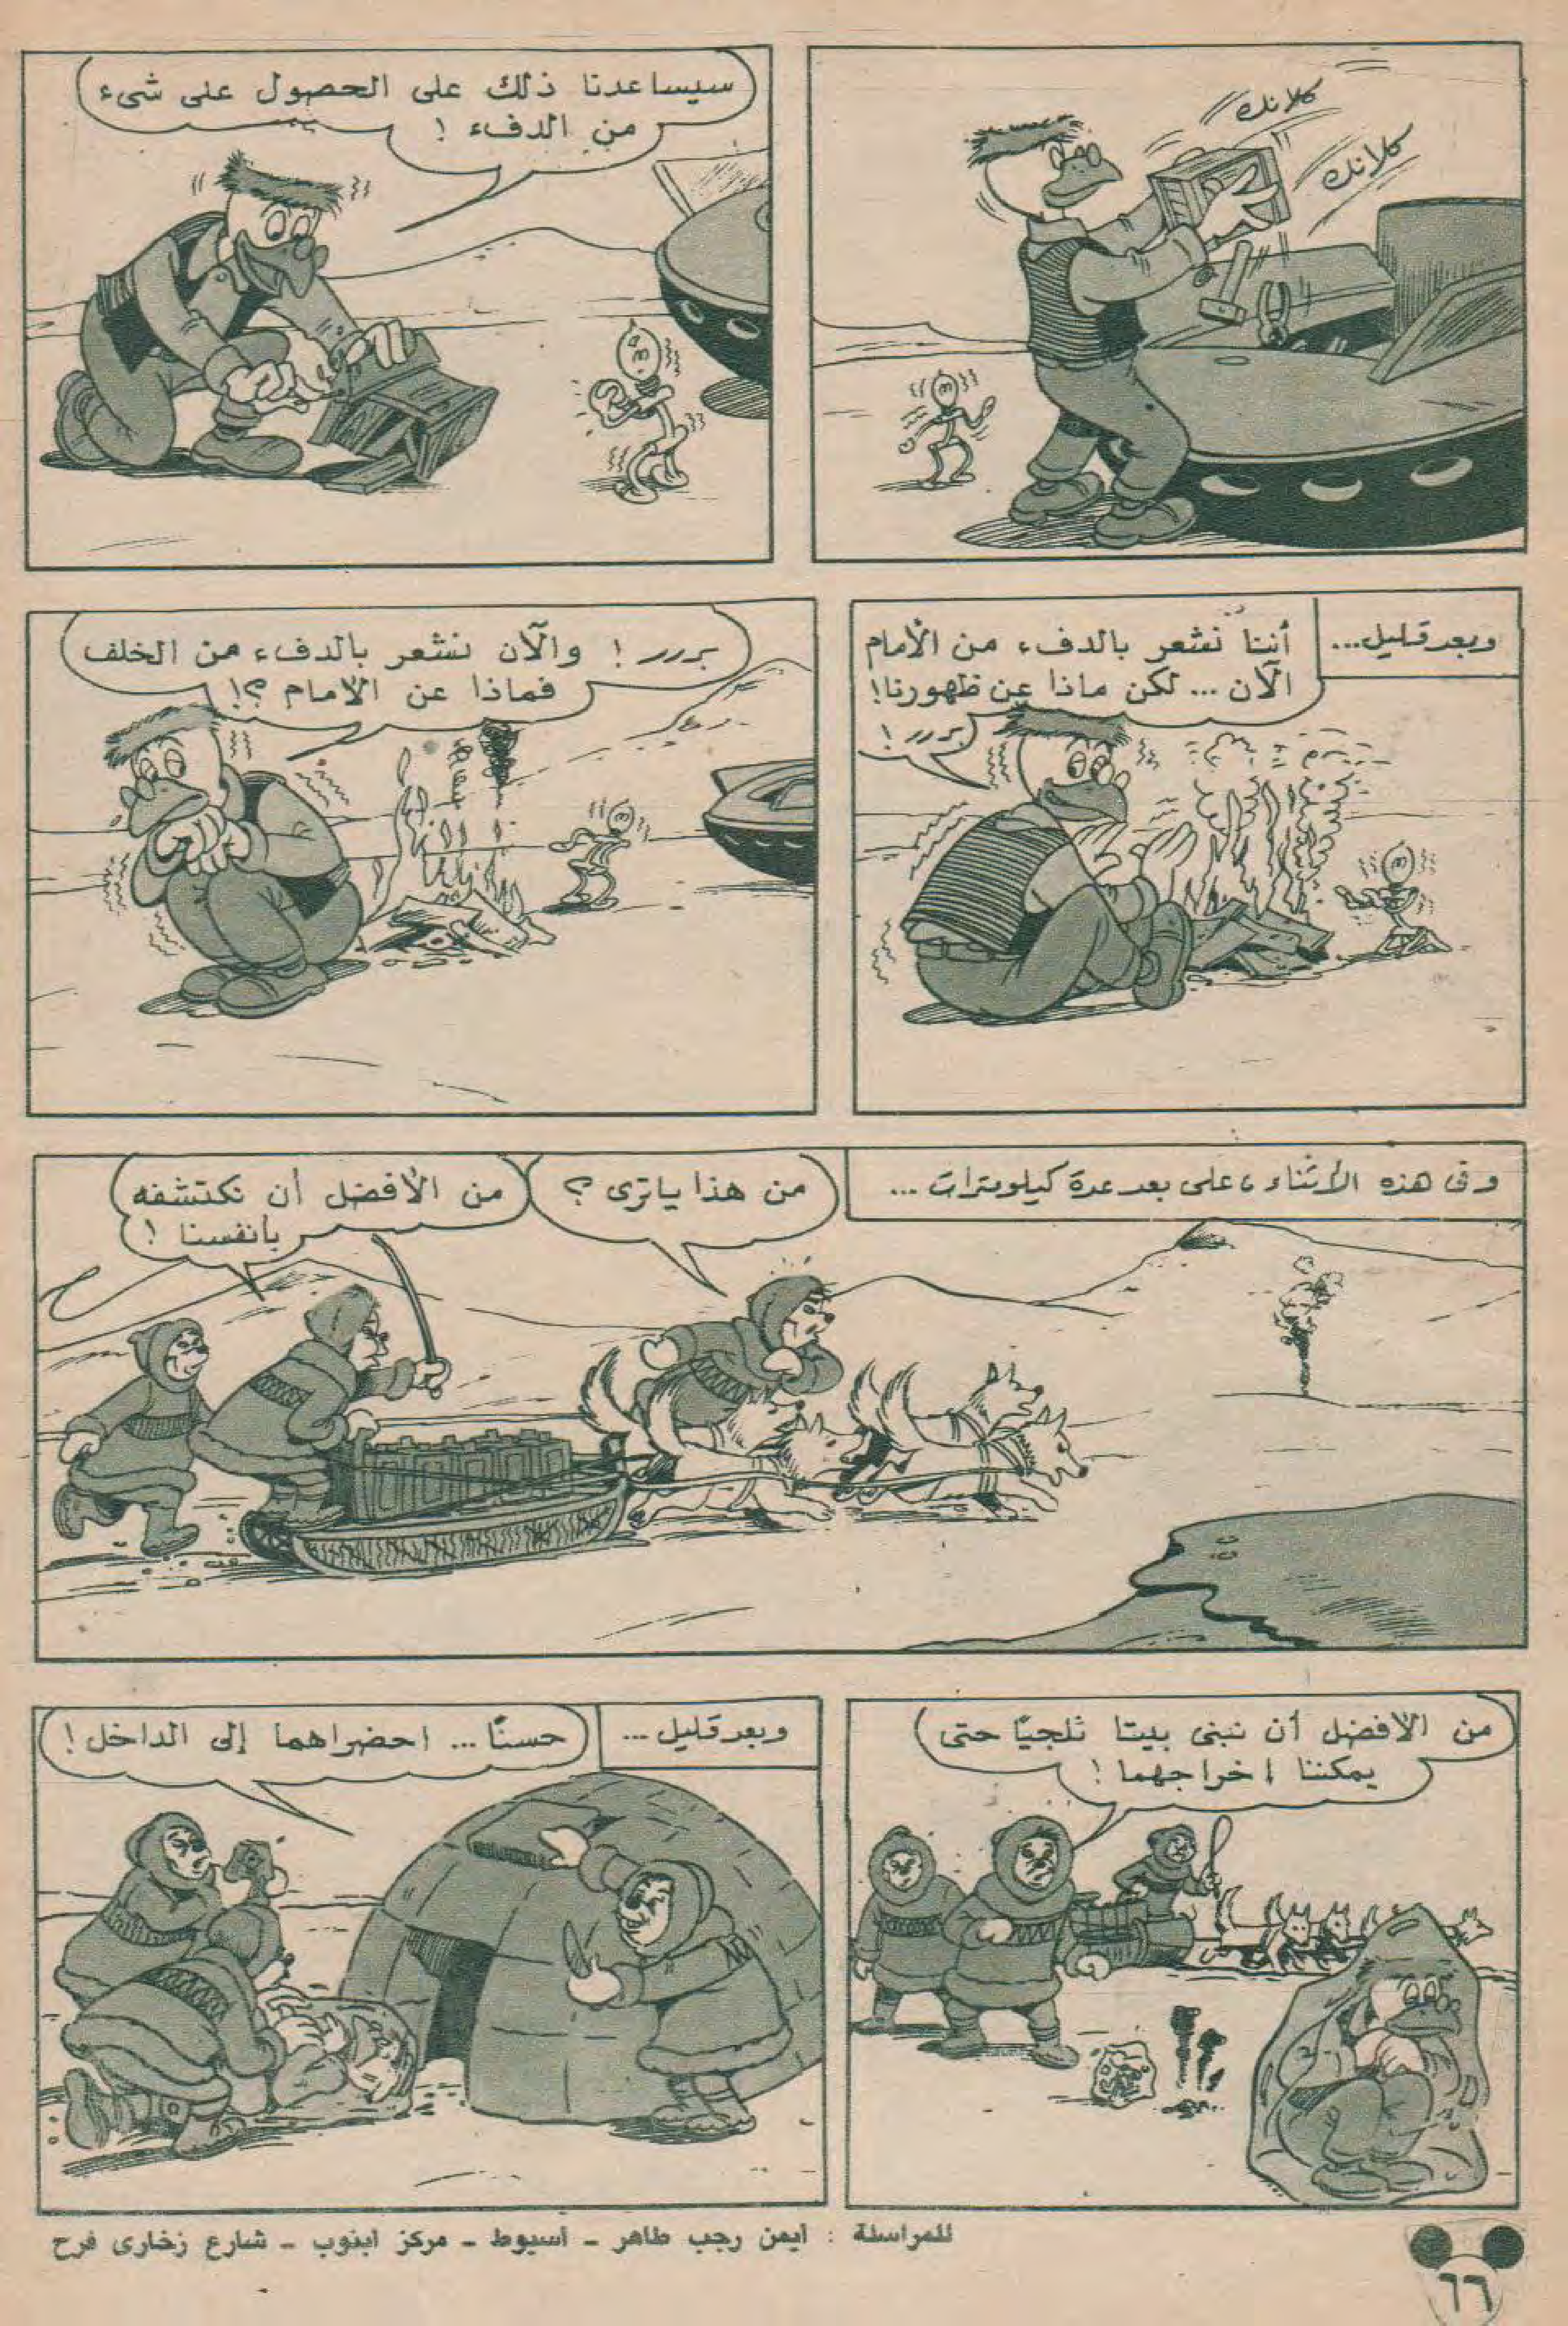 كلانك
كلانك
سيساعدنا ذلك على الحصول على شىء
من الدفء !
وبعد قليل...
أننا نشعر بالدفء من الأمام
الآن ... لكن ماذا عن ظهورنا!
بررر !
بررر ! والآن نشعر بالدفء من الخلف
فماذا عن الأمام ؟!
وفى هذه الأثناء ، على بعد عدة كيلومترات ...
من هذا ياترى ؟
من الأفضل أن نكتشفه
بأنفسنا !
من الأفضل أن نبنى بيتا ثلجيًا حتى
يمكننا اخراجهما !
وبعد قليل ...
حسنًا ... احضراهما إلى الداخل !
للمراسلة : أيمن رجب طاهر - أسيوط - مركز ابنوب - شارع زخارى فرح
٦٦